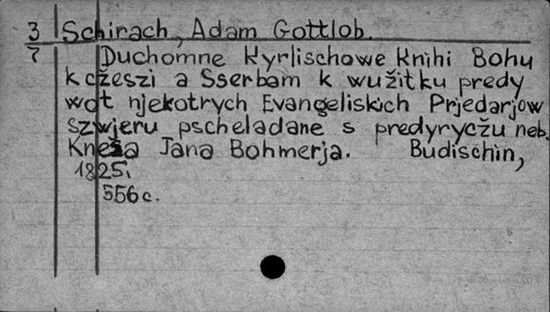 3 Schirach, Adam Gottlob.
7 Duchomne Kyrlischowe Knihi Bohu
k cžeszi a Sserbam k wužitku predy
wot njekotrych Evangeliskich Prjedarjow
Szwjeru pscheladane s predyrycžu neb.
Kneža Jana Bohmerja. Budischin,
1825.
556 c.